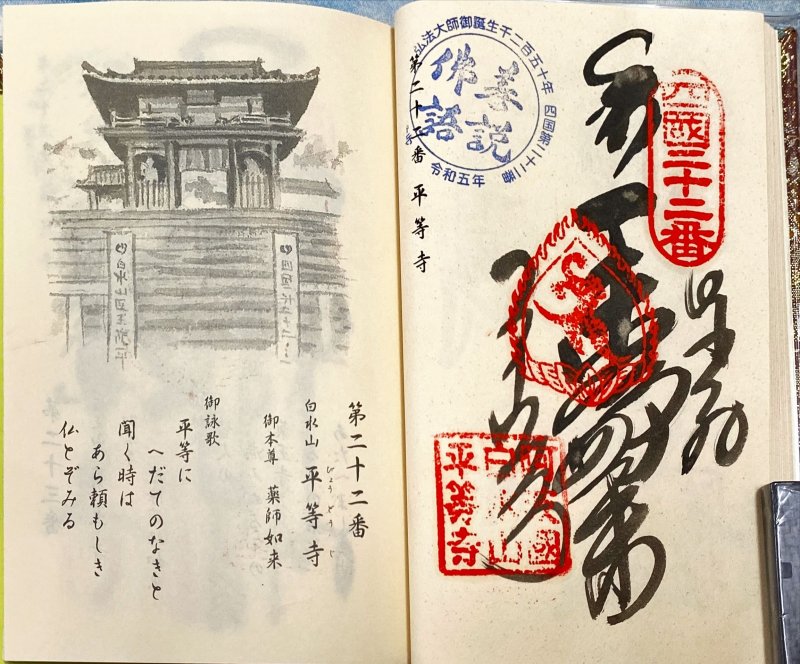 第二十二番
白水山 平等寺
びょうどうじ
御本尊 薬師如来
御詠歌
平等に
へだてのなきと
聞く時は
あら頼もしき
仏とぞみる
四國二十二番
奉納
弘法大師御誕生千二百五十年 四国第二十二番
令和五年
善説
佛語
第二十二番 平等寺
阿波國
白水山
平等寺